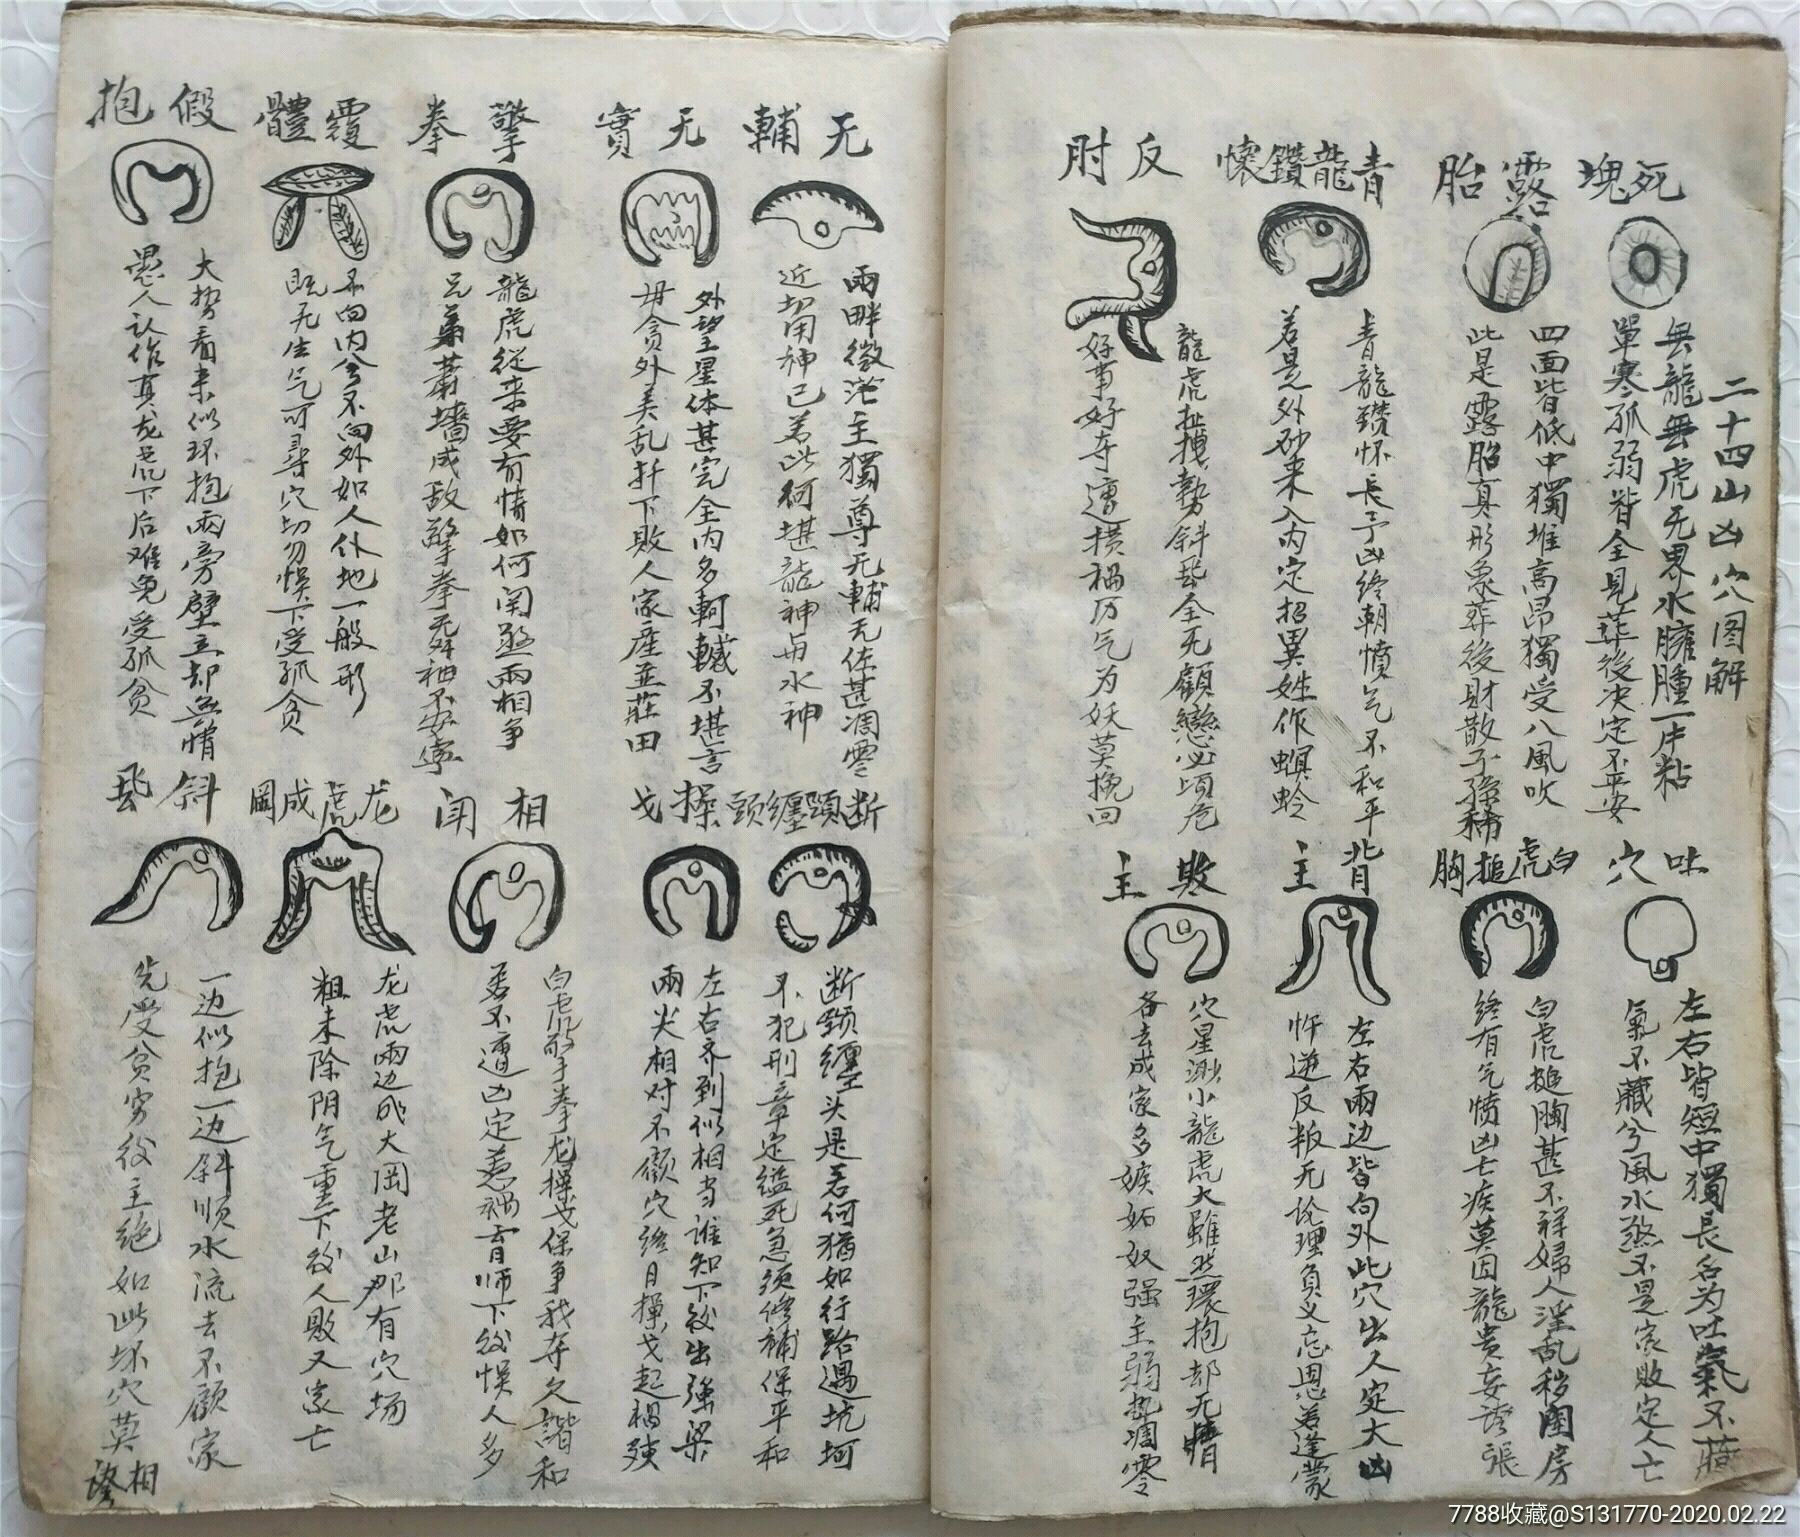 二十四山凶穴图解
死塊
無龍無虎无界水臃腫一片粘
單寒孤弱皆全見葬後决定不平安
露胎
四面皆低中獨堆高昂獨受八風吹
此是露胎真形象葬後財散子孫稀
青龍鑽懷
青龍鑽怀長子凶终朝憤气不和平
若是外砂来入内定招異姓作螟蛉
反肘
龍虎 勢斜飛全无顧戀必顷危
好事好夺遭横禍厉气为妖莫挽回
吐穴
左右皆短中獨長名为吐氣不藏
氣不藏兮風水煞不是家敗定人亡
白虎搥胸
白虎搥胸甚不祥婦人淫乱秽閨房
终有气愤凶亡疾莫因龍贵妄誇張
背主
左右兩边皆向外此穴出人定大凶
忤逆反叛无伦理負义忘恩若逢蒙
敗主
穴星渺小龍虎大雖然環抱却无情
各去成家多嫉妬奴强主弱势凋零
无輔
兩畔微茫主獨尊无輔无佐甚凋零
近切用神已若此何堪龍神与水神
无實
外望星体甚完全内多轲轗不堪言
毋贪外美乱扦下敗人家産並莊田
擎拳
龍虎從来要有情如何闭煞兩相争
兄弟蕭墻成敌擎拳 袖不安寧
覆體
不向内兮不向外如人仆地一般形
既无生气可尋穴切勿悞下受孤贪
假抱
大势看来似环抱兩旁壁立却無情
愚人认作真龙虎下后难免受孤贫
断頭纏頭
断頸纏头是若何猶如行路遇坑坷
不犯刑章定縊死急须修補保平和
操戈
左右齐到似相当谁知下後出强梁
兩尖相对不顾穴终日操戈起禍殃
相闭
白虎擎拳龙操戈保争我夺欠諧和
若不遭凶定惹禍盲师下後悮人多
龙虎成岡
龙虎兩边成大岡老山那有穴场
粗未除阴气重下後人败又家亡
斜飛
一边似抱一边斜順水流去不顧家
先受贫穷後主绝如此坏穴莫相誇
7788收藏@S131770-2020.02.22